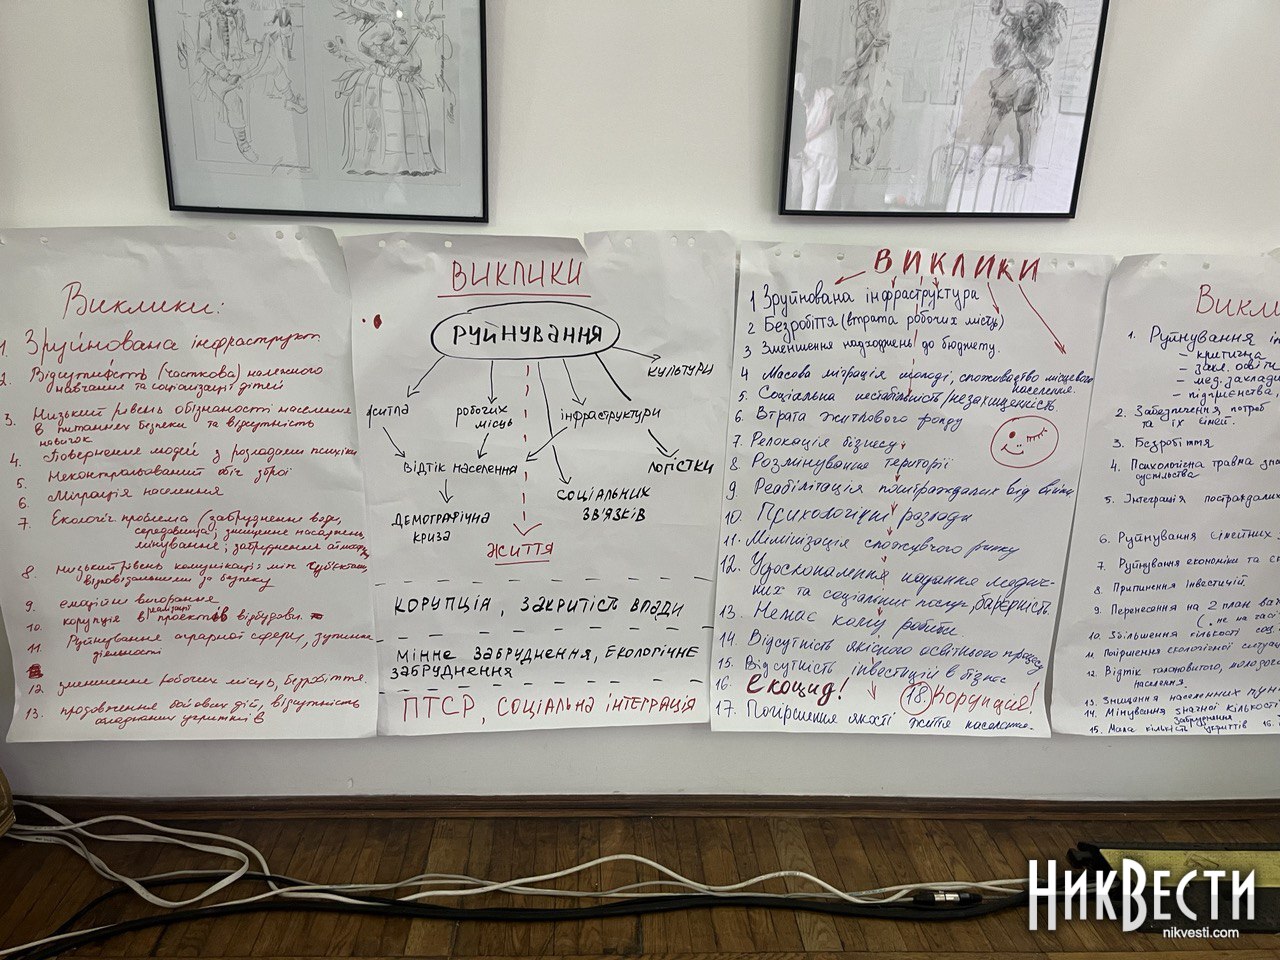 Виклики:
1. Зруйнована інфраструкт.
2. Відсутність (часткова) належного
навчання та соціалізації дітей
3. Низький рівень обізнаності населення
в питаннях безпеки та відсутність
навичок
4. Повернення людей з розладами психіки
5. Неконтрольований обіг зброї
6. Міграція населення
7. Екологіч проблема (забруднення води,
середовища, знищення насаджень,
мінування, забруднення
8. Низький рівень комунікації між суб'єктами
відповідальними за безпеку
9. емоційні вигорання
10. корупція в реалізації проектів відбудови
11. Руйнування аграрної сфери, зупинка
діяльності
12. зменшення робочих місць, безробіття.
13. продовження бойових дій, відсутність
укриттів
ВИКЛИКИ
РУЙНУВАННЯ
КУЛЬТУРИ
житла
робочих
місць
інфраструктури
відтік населення
логістки
соціальних
зв'язків
демографічна
криза
життя
корупція, закритість влади
мінне забруднення, екологічне
забруднення
ПТСР, соціальна інтеграція
ВИКЛИКИ
1 Зруйнована інфраструктура
2 Безробіття (втрата робочих місць)
3 Зменшення надходжень до бюджету.
4 Масова міграція молоді, споживацтво місцевого
населення.
5. Соціальна нестабільність/незахищенність
6. Втрата житлового фонду
7. Релокація бізнесу
8. Розмінування території
9. Реабілітація постраждалих від війни
10. Психологічні розлади
11. Мінімізація споживчого ринку
12. Удосконалення надання медич-
них та соціальних послуг, барєрність.
13. Немає кому робити.
14. Відсутність якісного освітнього процесу
15. Відсутність інвестицій в бізнес
16. Екоцид!
18. Корупція!
17. Погіршення якості життя населення.
Викли
1. Руйнування ін
- критична
- закл. освіти
- мед. заклади
- підприємства,
2. Забезпечення потреб
та їх сімей.
3. Безробіття
4. Психологічна травма
суспільства
5. Інтеграція постраждалих
6. Руйнування сімейних
7. Руйнування економіки та
8. Припинення інвестицій
9. Перенесення на 2 план
(не на часі
10. Збільшення кількості соц.
11. Погіршення екологічної ситуації
12. Відтік талановитого,
населення.
13. Знищення населених пун
14. Мінування значної кількості
Забруднення
15. Мала кількість укриттів 16.
НикВести
nikvesti.com